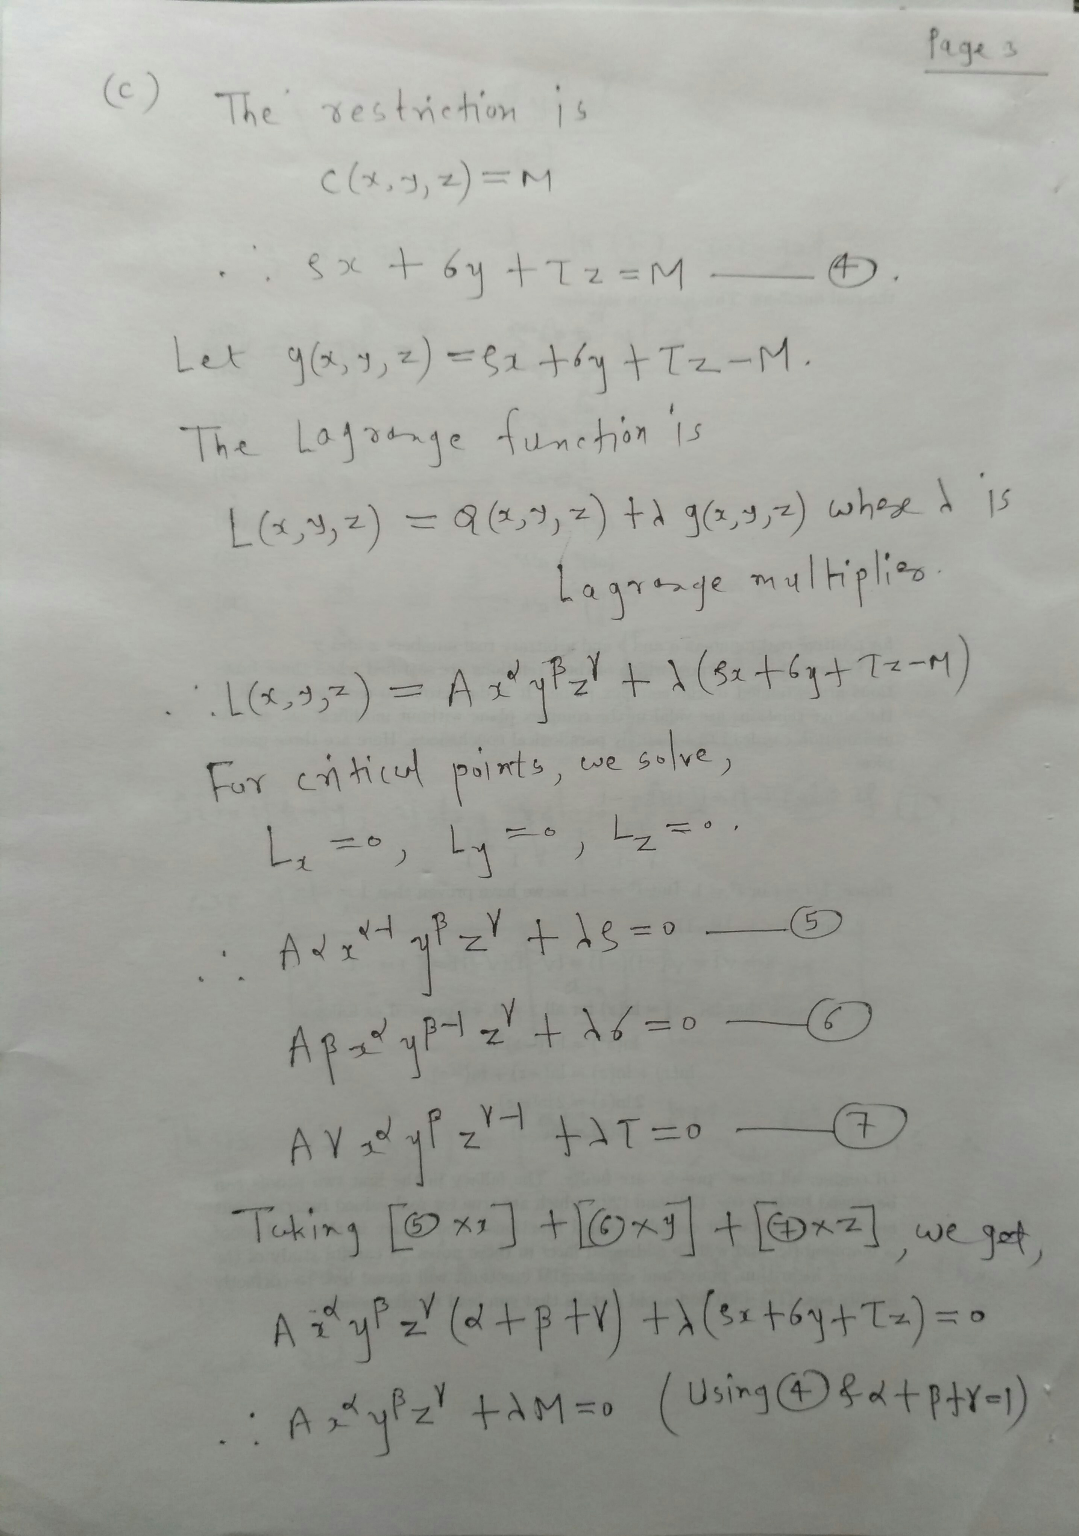 Page 3
(c) The restriction is
C(x, y, z) = M
∴ ρx + σy + τz = M —— ④.
Let g(x, y, z) = ρx + σy + τz - M.
The Lagrange function is
L(x, y, z) = Q(x, y, z) + λ g(x, y, z) where λ is
Lagrange multiplier.
∴ L(x, y, z) = A x^α y^β z^γ + λ(ρx + σy + τz - M)
For critical points, we solve,
L_x = 0, L_y = 0, L_z = 0.
∴ A α x^(α-1) y^β z^γ + λρ = 0 —— ⑤
A β x^α y^(β-1) z^γ + λσ = 0 —— ⑥
A γ x^α y^β z^(γ-1) + λτ = 0 —— ⑦
Taking [⑤ × x] + [⑥ × y] + [⑦ × z], we get,
A x^α y^β z^γ (α + β + γ) + λ(ρx + σy + τz) = 0
∴ A x^α y^β z^γ + λM = 0 (Using ④ & α + β + γ = 1)